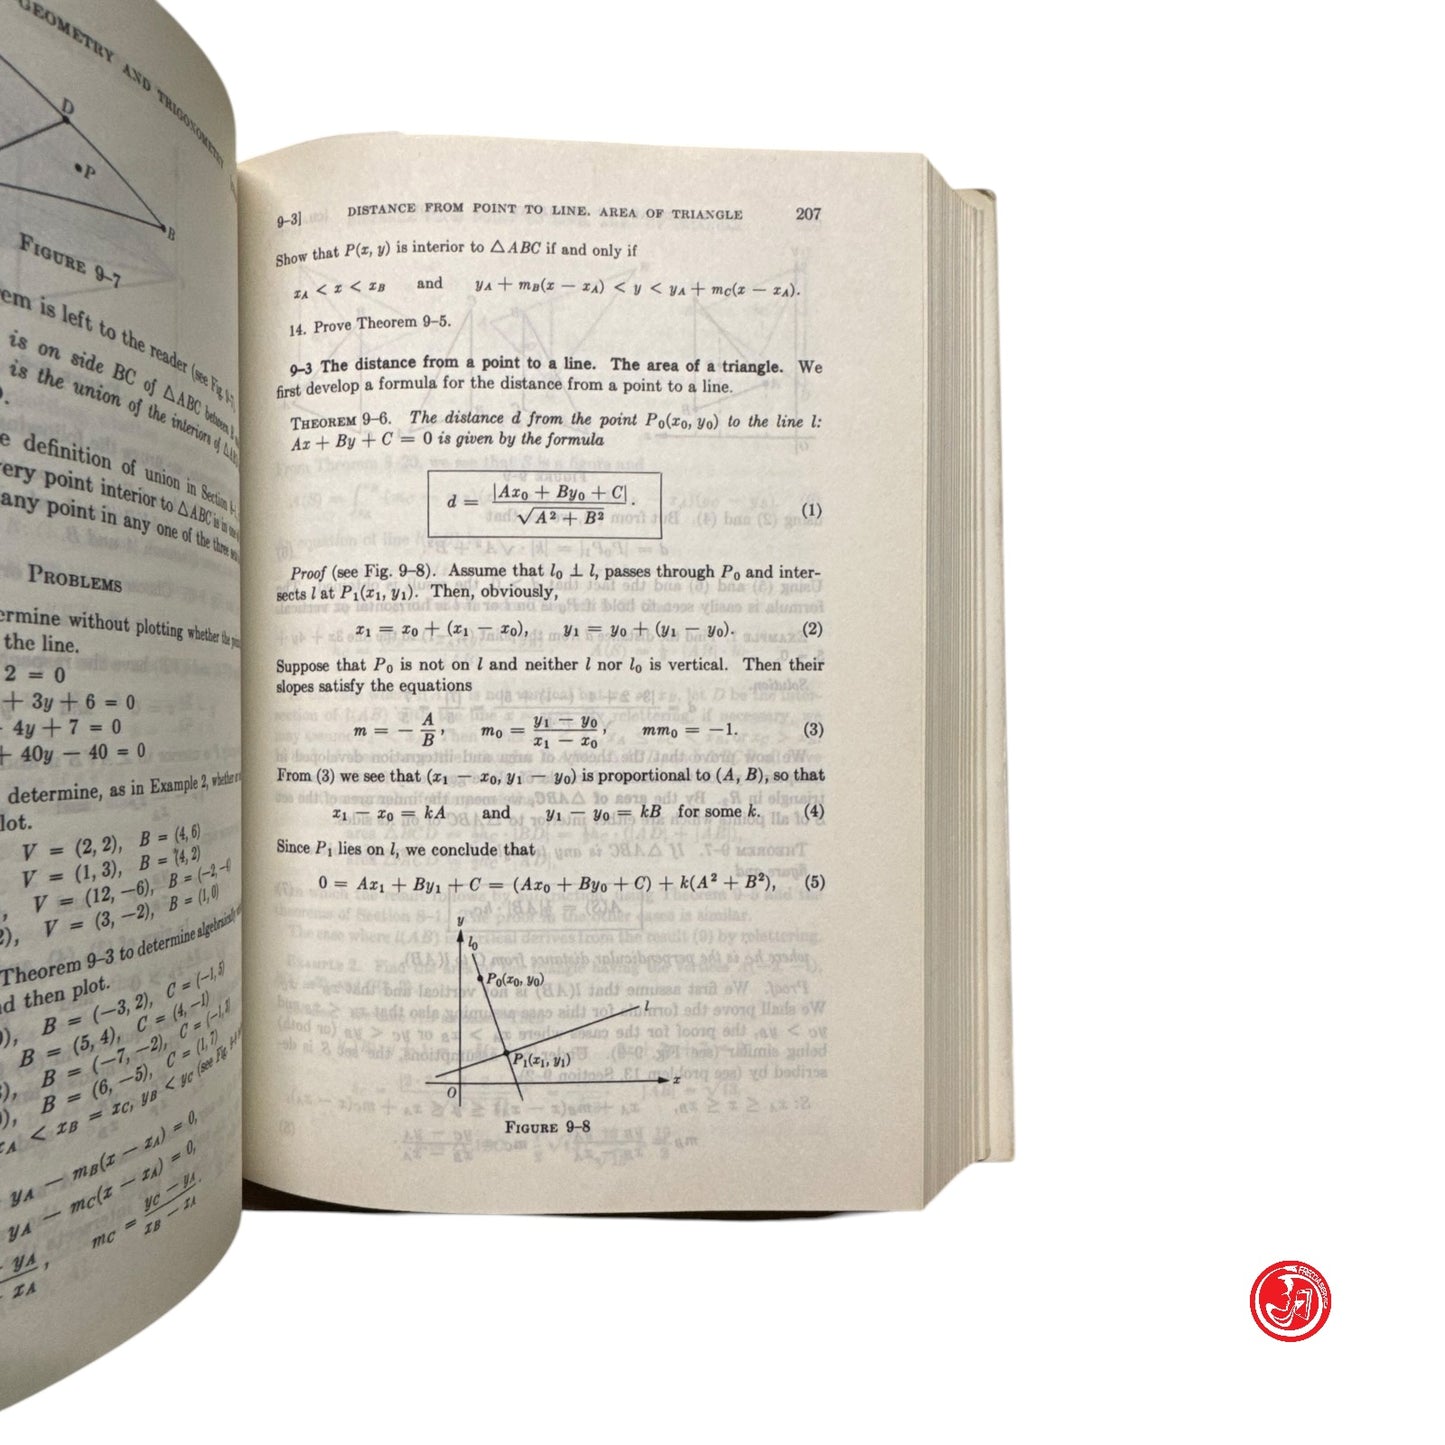 GEOMETRY AND TRIGONOMETRY
D
P
B
FIGURE 9–7
is left to the reader (see Fig. 9–7).
is on side BC of △ABC between B
is the union of the interiors of
definition of union in Section
every point interior to △ABC is in
any point in any one of the three
PROBLEMS
determine without plotting whether the
the line.
2 = 0
+ 3y + 6 = 0
4y + 7 = 0
+ 40y − 40 = 0
determine, as in Example 2, whether
plot.
V = (2, 2), B = (4, 6)
V = (1, 3), B = (4, 2)
V = (12, −6), B = (−2, −4)
V = (3, −2), B = (1, 0)
Theorem 9–3 to determine algebraically
and then plot.
B = (−3, 2), C = (−1, 5)
B = (5, 4), C = (4, −1)
B = (−7, −2), C = (−1, 3)
B = (6, −5), C = (1, 7)
xA < xB = xC, yB < yC (see Fig.
yA − mB(x − xA) = 0,
yA − mC(x − xA) = 0,
yA, mC = yC − yA
xA xB − xA
9–3] DISTANCE FROM POINT TO LINE. AREA OF TRIANGLE 207
Show that P(x, y) is interior to △ABC if and only if
xA < x < xB and yA + mB(x − xA) < y < yA + mC(x − xA).
14. Prove Theorem 9–5.
9–3 The distance from a point to a line. The area of a triangle. We
first develop a formula for the distance from a point to a line.
THEOREM 9–6. The distance d from the point P0(x0, y0) to the line l:
Ax + By + C = 0 is given by the formula
d = |Ax0 + By0 + C| / √A² + B² . (1)
Proof (see Fig. 9–8). Assume that l0 ⊥ l, passes through P0 and inter-
sects l at P1(x1, y1). Then, obviously,
x1 = x0 + (x1 − x0), y1 = y0 + (y1 − y0). (2)
Suppose that P0 is not on l and neither l nor l0 is vertical. Then their
slopes satisfy the equations
m = − A/B, m0 = y1 − y0 / x1 − x0, mm0 = −1. (3)
From (3) we see that (x1 − x0, y1 − y0) is proportional to (A, B), so that
x1 − x0 = kA and y1 − y0 = kB for some k. (4)
Since P1 lies on l, we conclude that
0 = Ax1 + By1 + C = (Ax0 + By0 + C) + k(A² + B²), (5)
y
l0
P0(x0, y0)
l
P1(x1, y1)
O
x
FIGURE 9–8